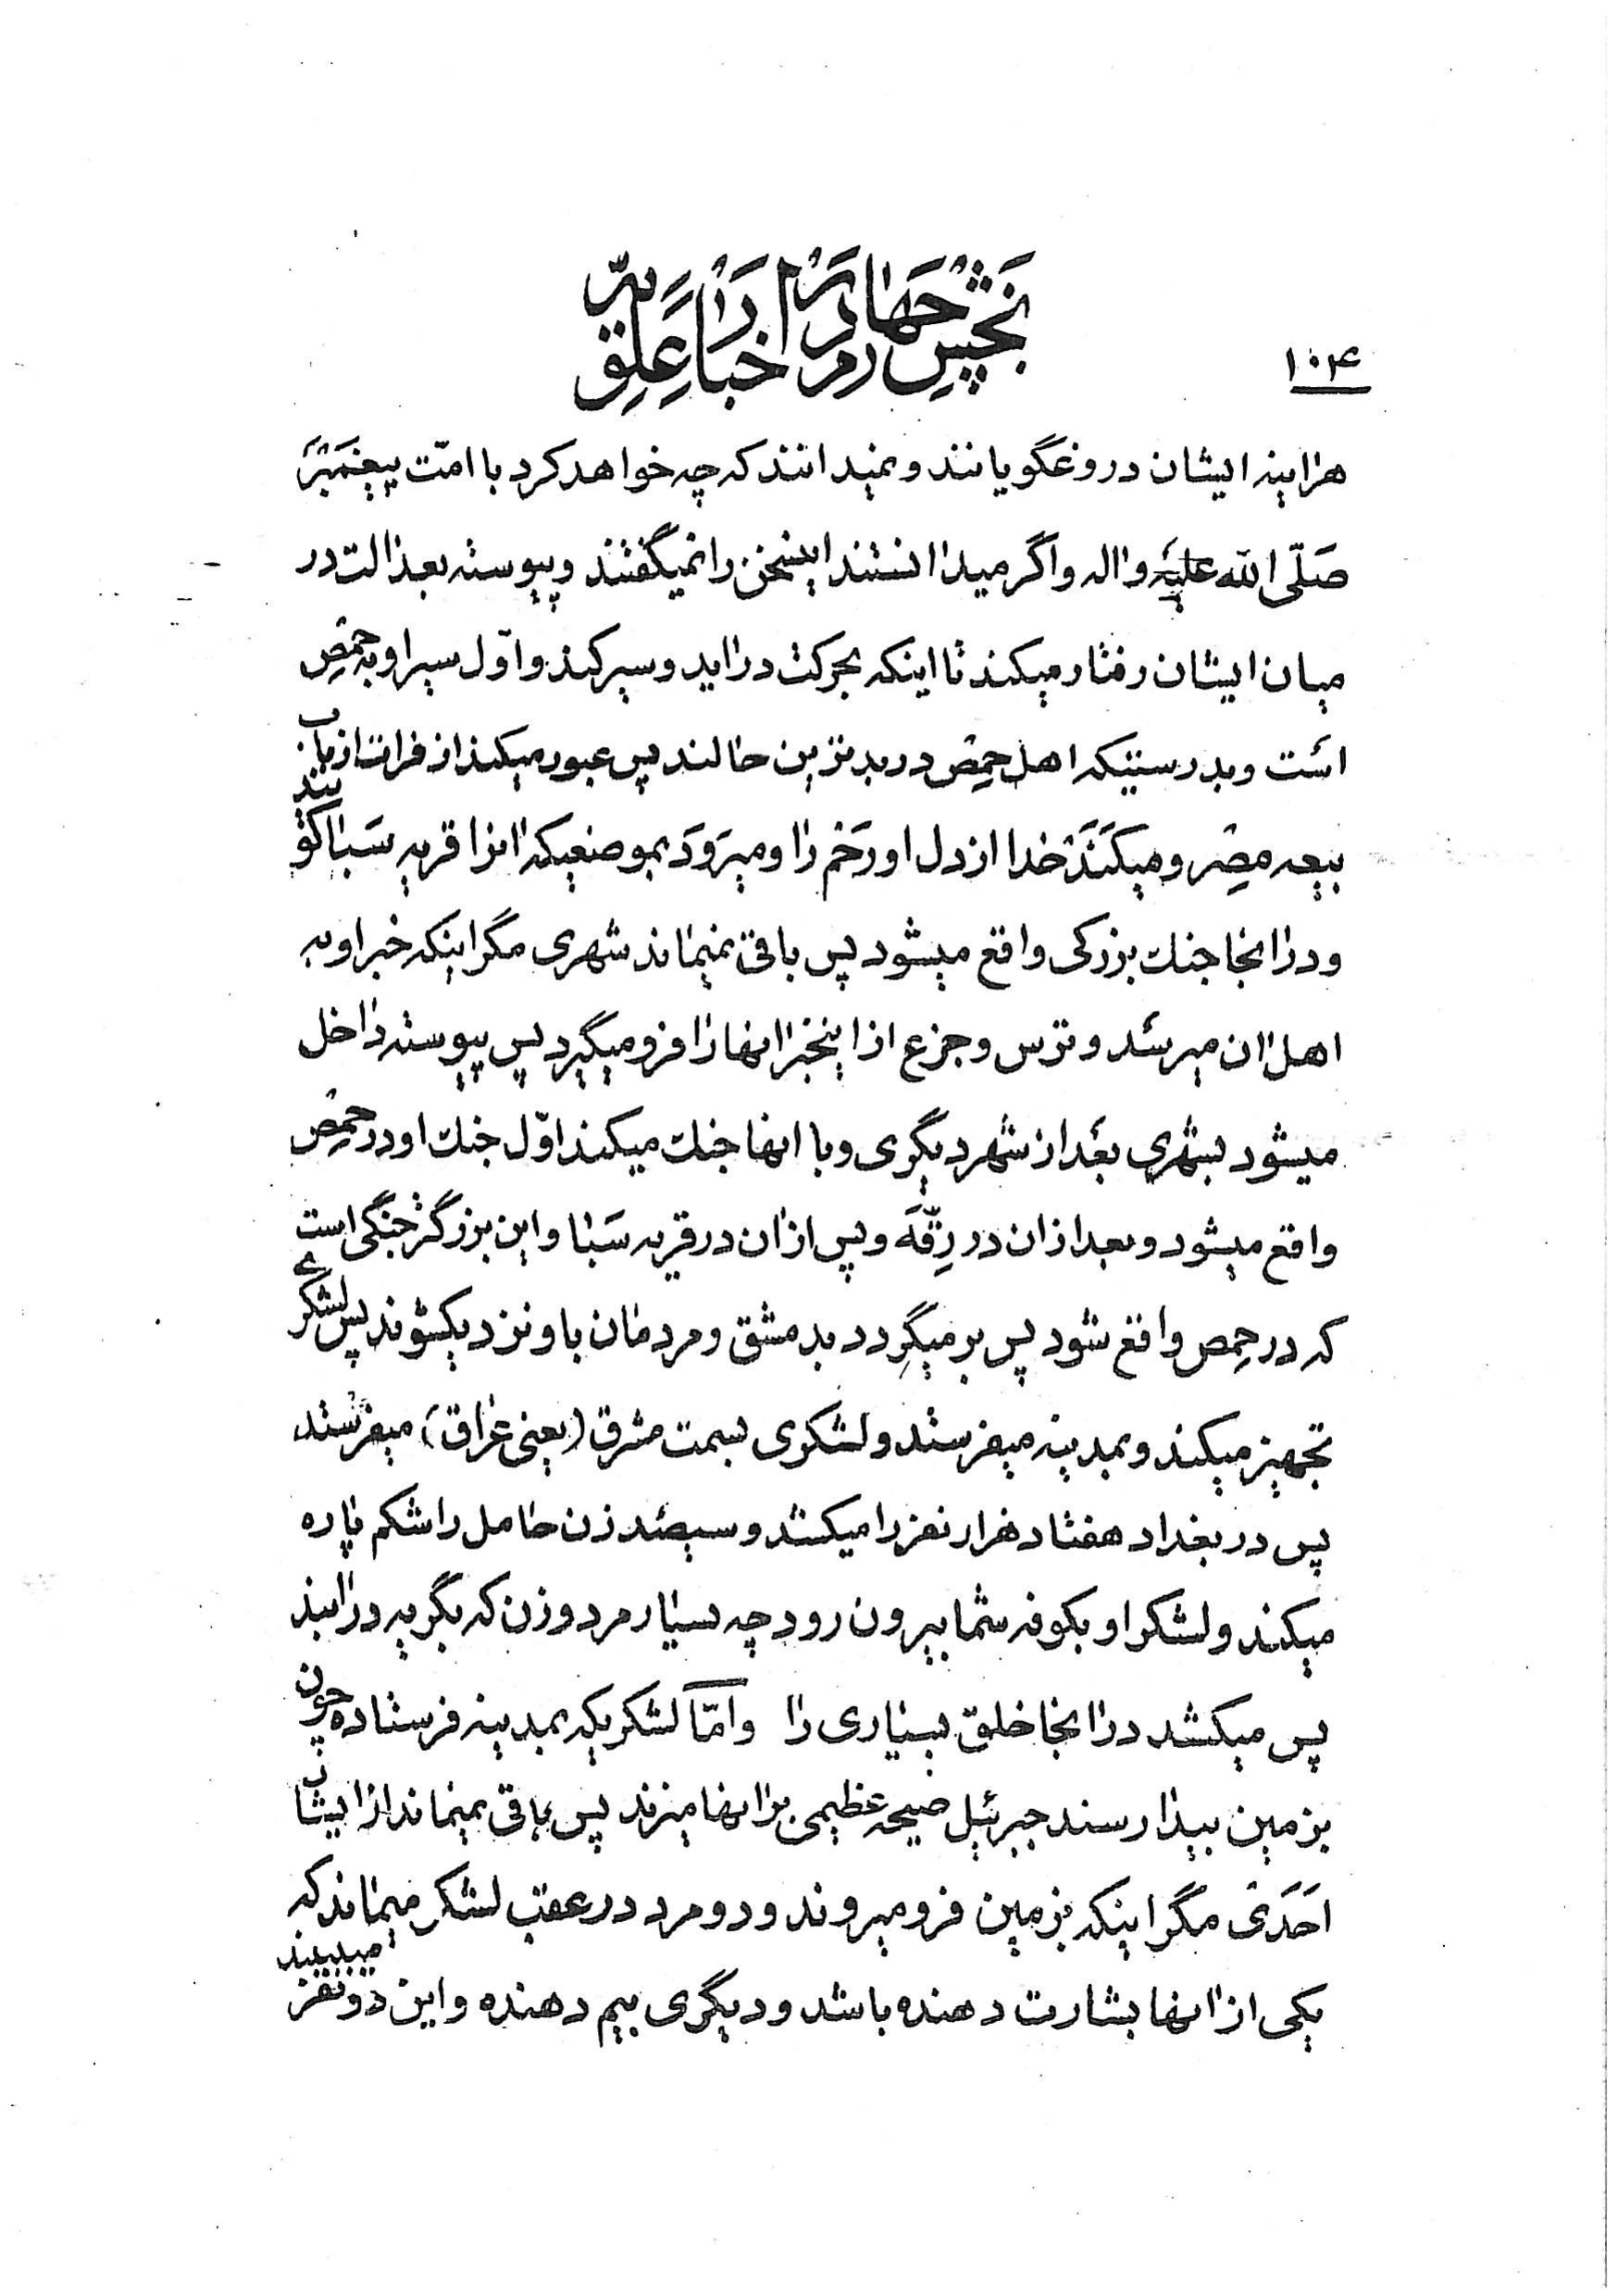 ۱۰۴
بخش چهارم در اخبار علویه
هراینه ایشان دروغگویانند و نمیدانند که چه خواهد کرد با امّت پیغمبر
صَلّی الله علیه واله و اگر میدانستند اینسخن را نمیگفتند و پیوسته بعدالت در
میان ایشان رفتار میکند تا اینکه بحرکت دراید و سیر کند و اوّل سیر او به حِمص
است و بدرستیکه اهل حِمص در بدترین حالند پس عبور میکند از فرات از باب
بیعه مصر و میکَنَد خدا از دل او رَحم را و میرَوَد بموضعیکه انرا قریه سَبا گویند
و در انجا جنك بزرکی واقع میشود پس باقی نمیماند شهری مگر اینکه خبر او به
اهل ان میرسد و ترس و جزع از اینخبر انها را فرو میگیرد پس پیوسته داخل
میشود بشهری بعد از شهر دیگری و با انها جنك میکند اوّل جنك او در حِمص
واقع میشود و بعد از ان در رِقّه و پس از ان در قریه سَبا و این بزرگتر جنگی است
که در حِمص واقع شود پس برمیگردد بدمشق و مردمان باو نزدیکشوند پس لشگری
تجهیز میکند و بمدینه میفرستد و لشکری بسمت مشرق (یعنی عراق) میفرستد
پس در بغداد هفتاد هزار نفر را میکشد و سیصد زن حامل را شکم پاره
میکند و لشکر او بکوفه شما بیرون رود چه بسیار مرد و زن که بگریه درایند
پس میکشد در انجا خلق بسیاری را و امّا لشکریکه بمدینه فرستاده چون
بزمین بیدا رسند جبرئیل صیحه عظیمی بر انها میزند پس باقی نمیماند از ایشان
احَدی مگر اینکه بزمین فرو میروند و دو مرد در عقب لشکر میماند که
یکی از انها بشارت دهنده باشد و دیگری بیم دهنده و این دو نفر میبینند